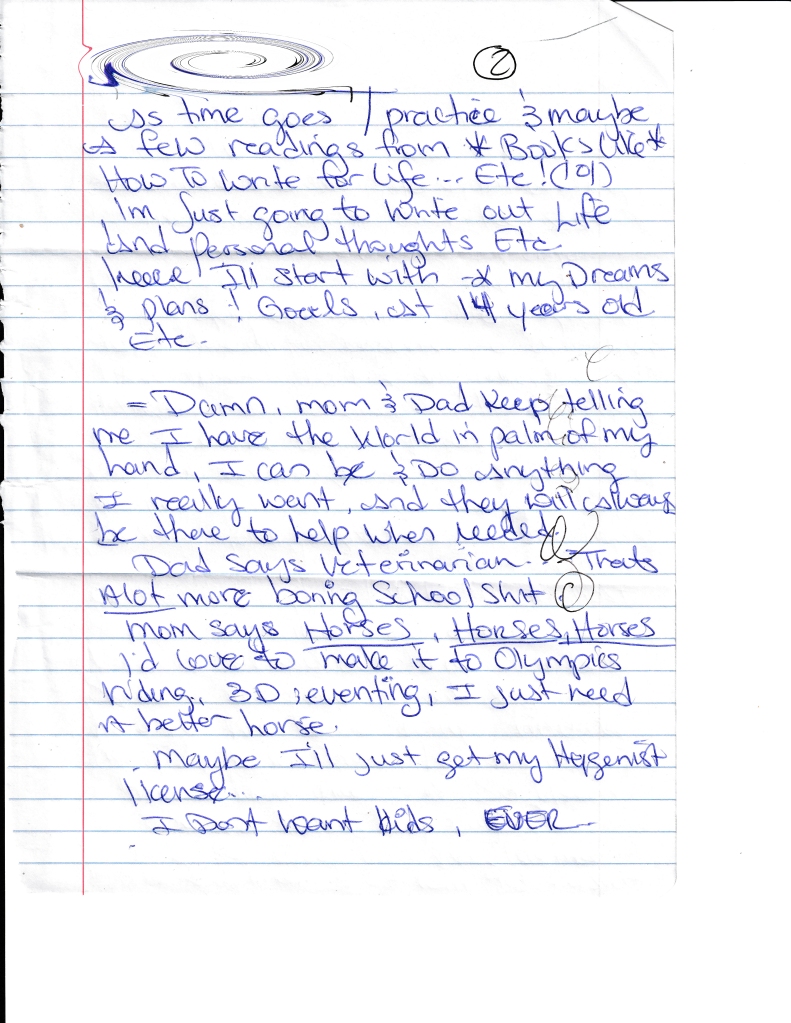 2
As time goes / practice & maybe
A few readings from * Books like *
How To Write for Life... Etc! (101)
Im Just going to Write out Life
And Personal thoughts Etc.
I'll start with my Dreams
& plans! Goals, at 14 years old
Etc.
= Damn, mom & Dad Keep telling
me I have the World in palm of my
hand, I can be & Do anything
I really want, and they will always
be there to help when needed.
Dad says Veterinarian... Thats
Alot more boring School Shit
mom says Horses, Horses, Horses
I'd love to make it to Olympics
riding, 3D; eventing, I just need
A better horse.
maybe I'll just get my Hygenist
license...
I Dont want kids, EVER.